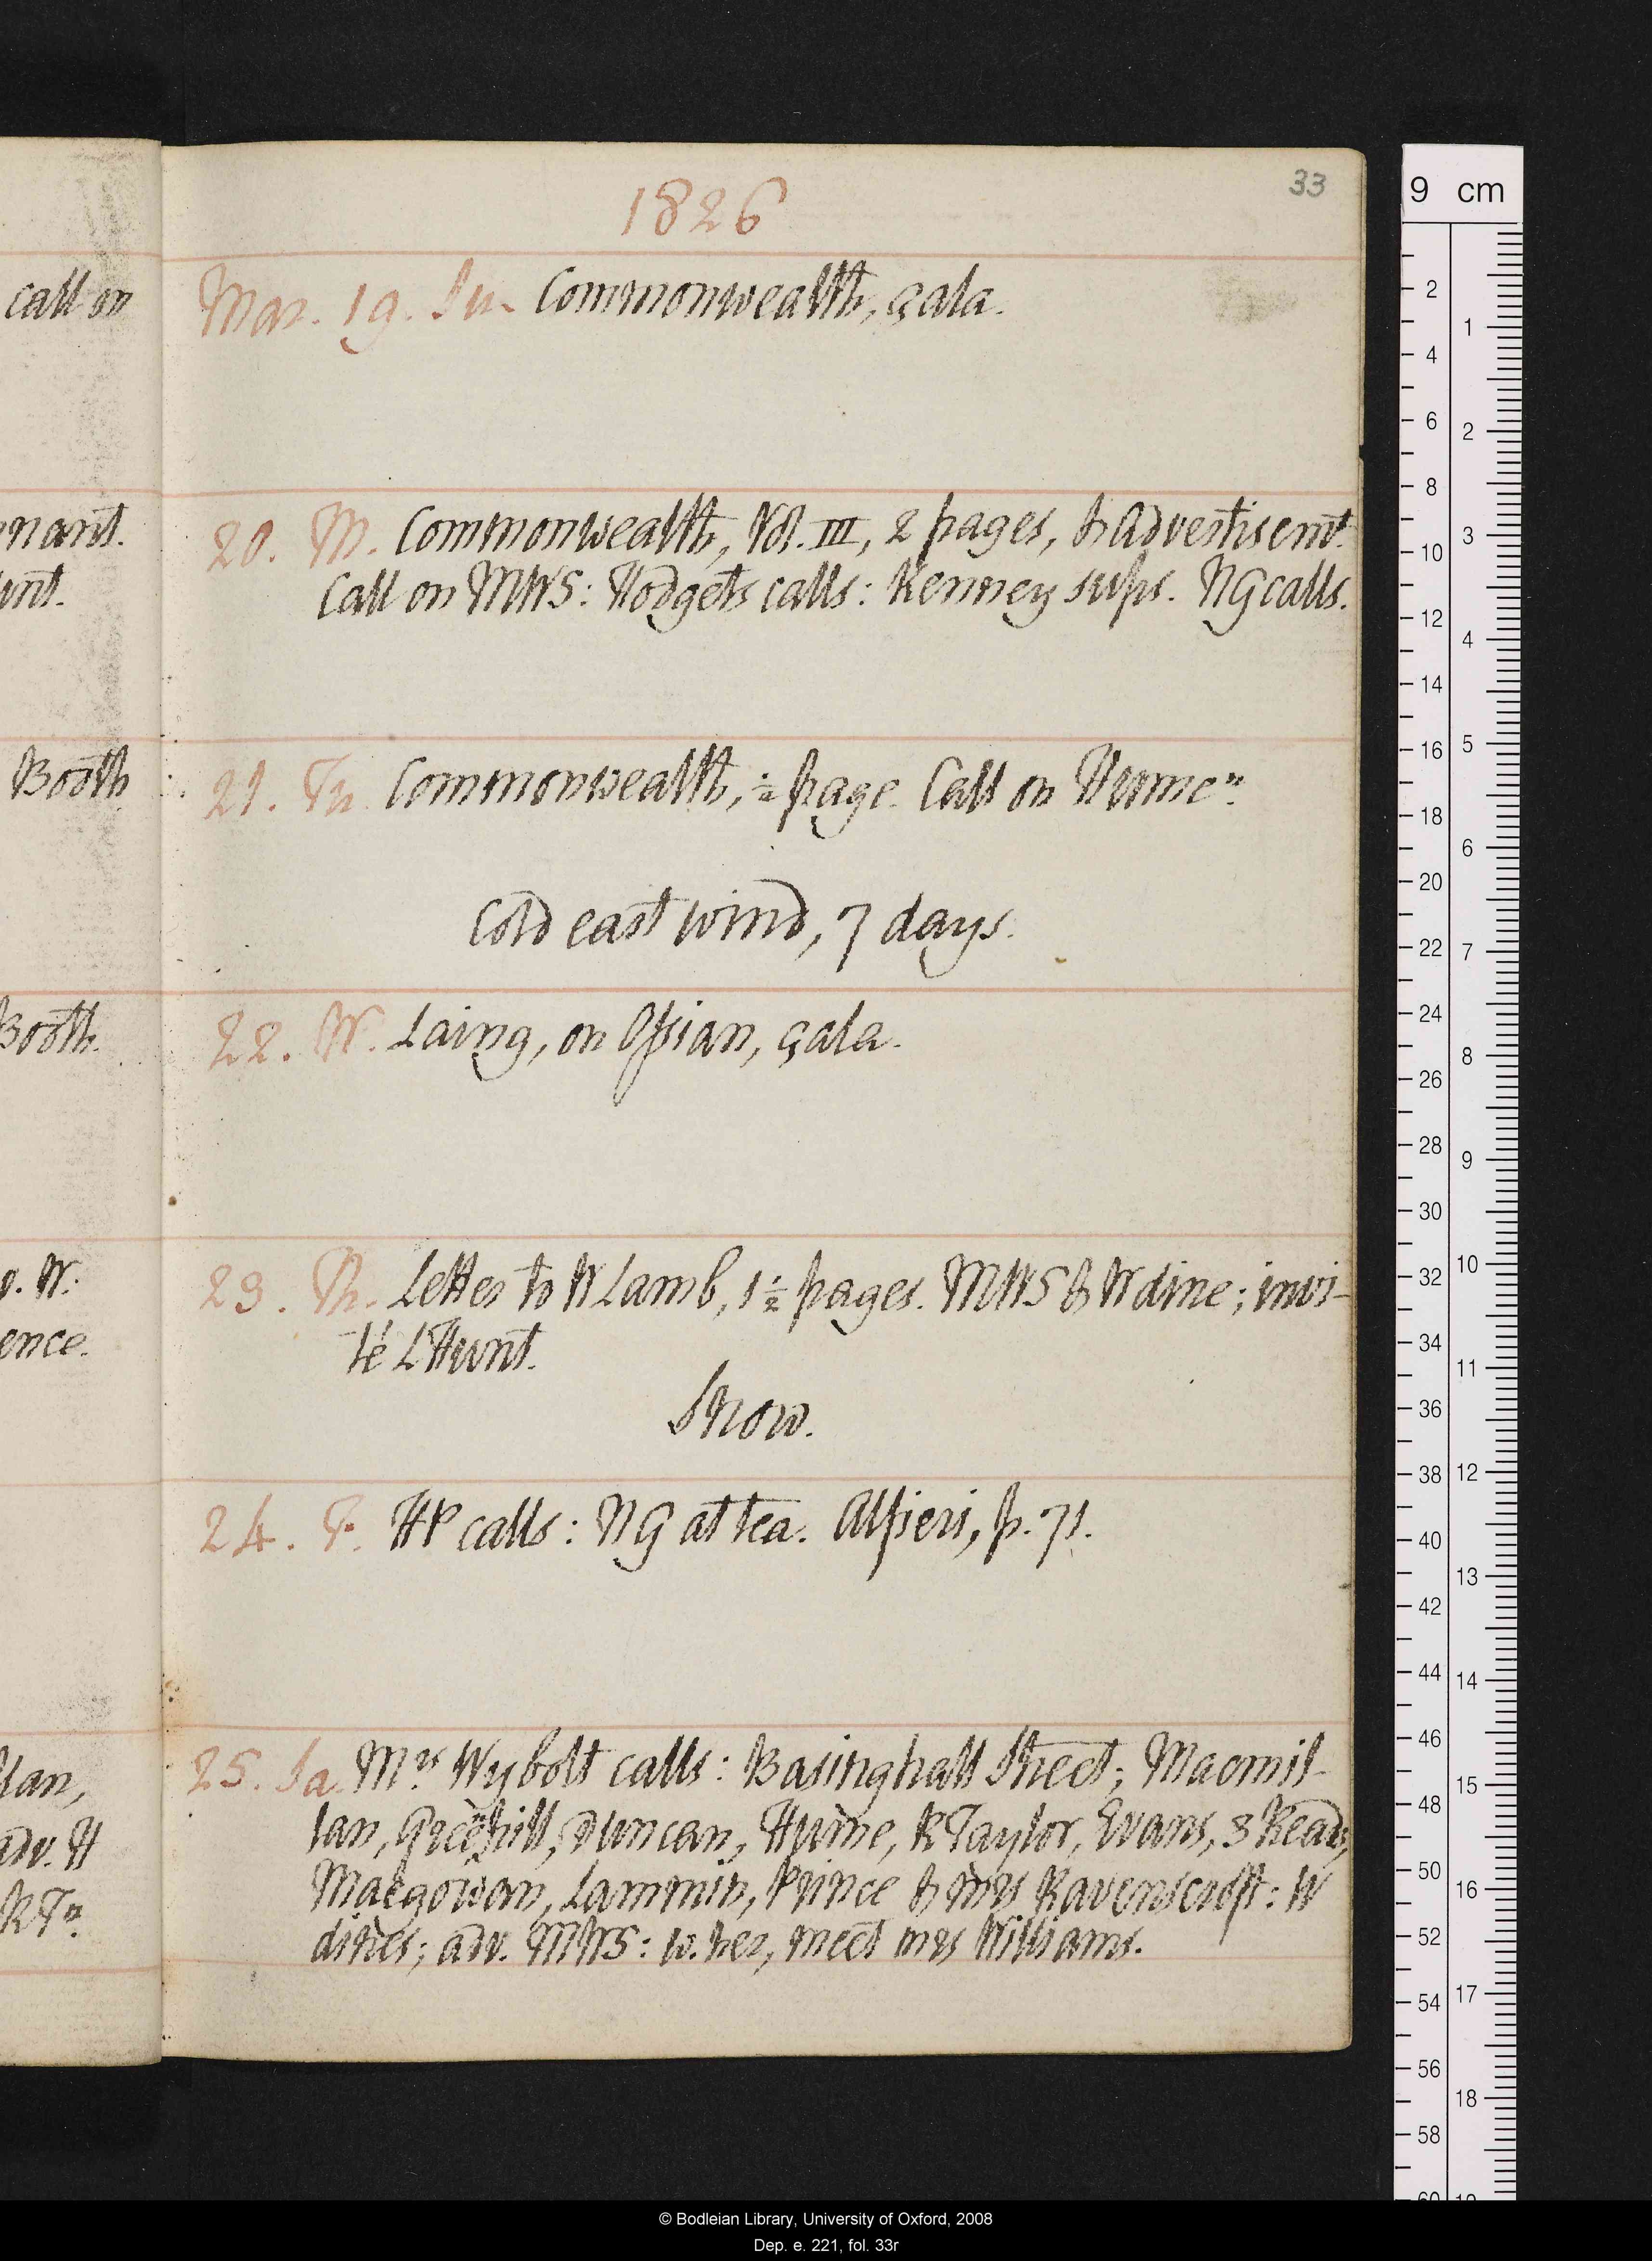 33
1826
call on
Mar. 19. Su. Commonwealth, çala.
nant.
20. M. Commonwealth, Vol. III, 2 pages, & Advertisemt.
unt.
Call on MWS: Hodgets calls: Kenney sups. NG calls.
Booth
21. Tu. Commonwealth, ½ page. Call on Hume n.
Cold east wind, 7 days.
Booth.
22. W. Laing, on Ossian, çala.
v. W:
23. Th. Letter to W Lamb, 1½ pages. MWS & W dine; invi-
ence.
té LHunt.
Snow.
24. F. HP calls: NG at tea. Alfieri, p. 71.
lan,
25. Sa. Mrs Wybolt calls: Basinghall Street; Macmil-
adv. H
lan, Duncan, Hume, R Taylor, Evans, 3 Reads,
RTn.
Macgowan, Lammin, Prince & mrs Ravenscroft: W
dines; adv. MWS: w. her, meet mrs Williams.
9 cm
2 4 6 8 10 12 14 16 18 20 22 24 26 28 30 32 34 36 38 40 42 44 46 48 50 52 54 56 58 60
1 2 3 4 5 6 7 8 9 10 11 12 13 14 15 16 17 18
© Bodleian Library, University of Oxford, 2008
Dep. e. 221, fol. 33r